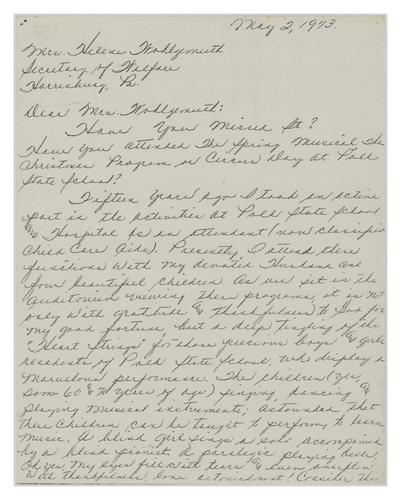 May 2, 1973.
Mrs. Helene Wohlgemuth
Secretary of Welfare
Harrisburg, Pa.
Dear Mrs. Wohlgemuth:
Have You Missed It?
Have You attended The Spring Musical, The
Christmas Program or Circus Day at Polk
State School?
Fifteen Years ago I took an active
part in the activities at Polk State School
& Hospital as an attendant (now classified
Child Care Aide). Presently, I attend these
functions with my devoted Husband and
four beautiful children. As we sit in the
Auditorium viewing these programs, it is not
only with gratitude & thankfulness to God for
my good fortune, but a deep tugging of the
"Heart Strings" for those precious boys & girls
residents of Polk State School, who display a
marvelous performance. The children (yes,
some 60 & 70 years of age) singing, dancing &
playing musical instruments; astounded that
these children can be taught to perform, to learn
music. A blind girl sings a solo accompanied
by a blind pianist. A paralegic playing
Oh yes, My eyes fill with tears & even overflow
with thankfulness, love, astonishment! Consider the